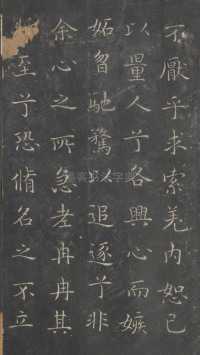 不厭乎求索羌内恕己
以量人兮各興心而嫉
妬曶馳騖以追逐兮非
余心之所急老冉冉其
將至兮恐脩名之不立